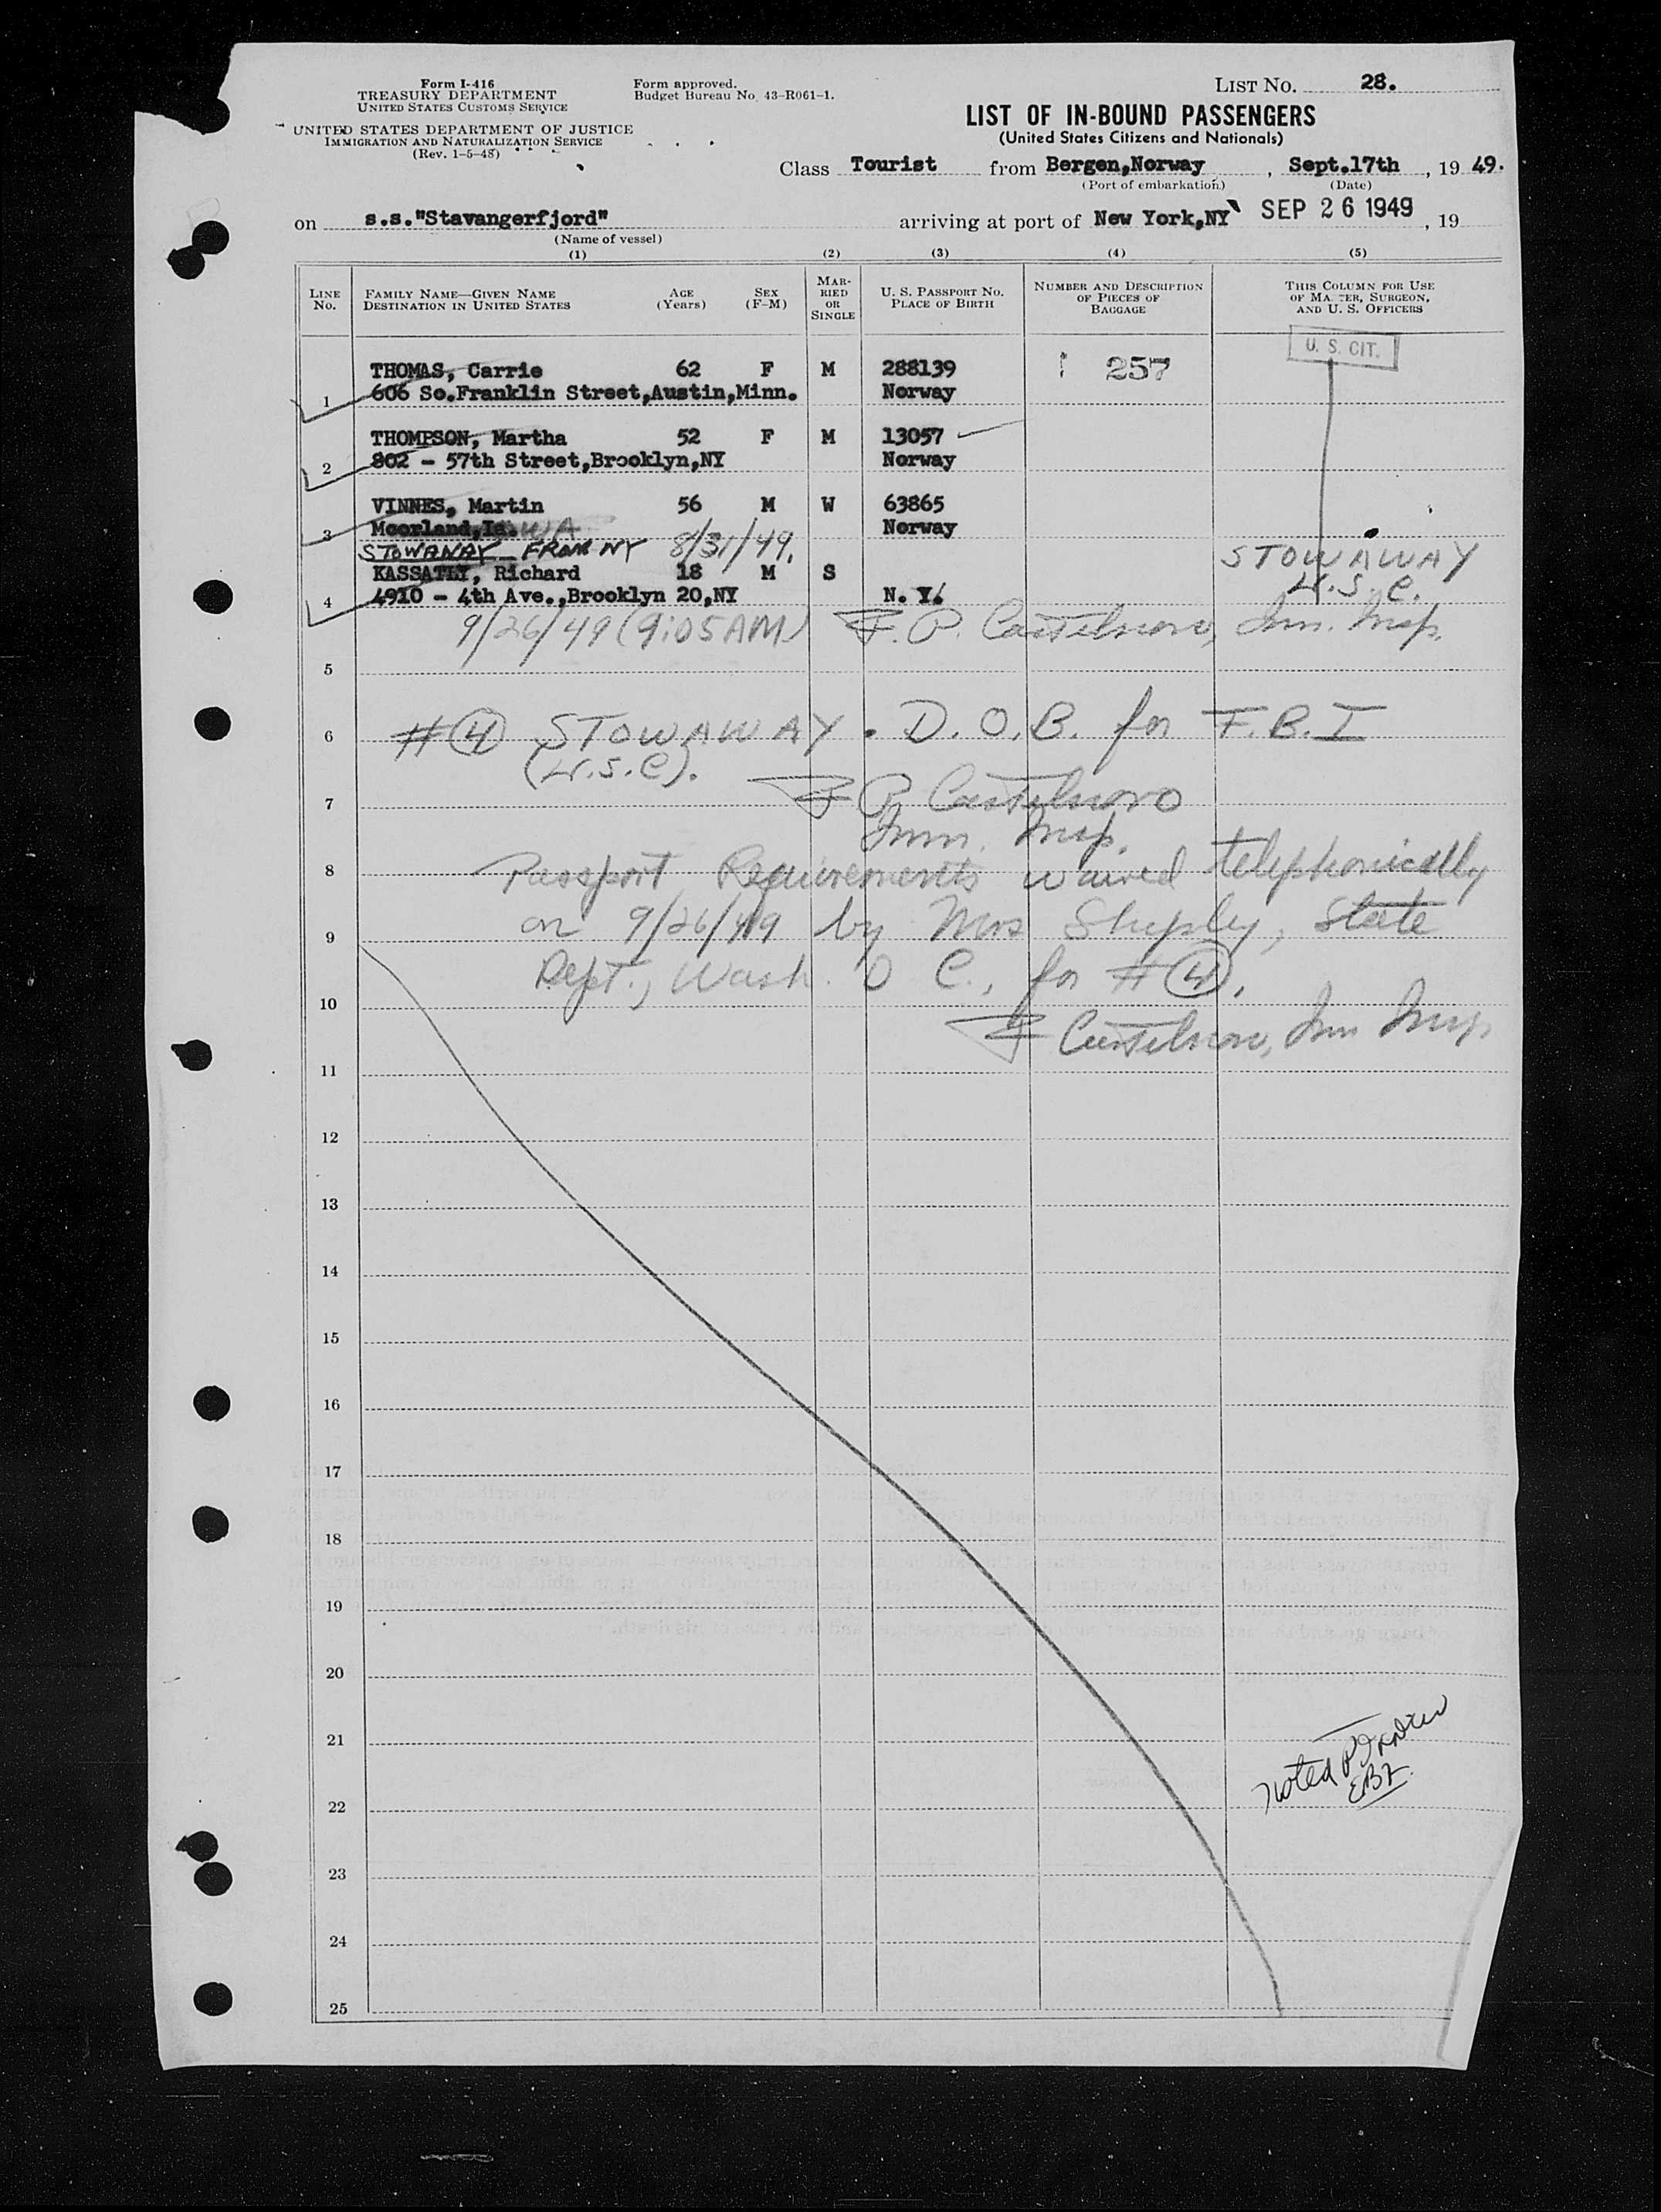 Form I-416
TREASURY DEPARTMENT
UNITED STATES CUSTOMS SERVICE
UNITED STATES DEPARTMENT OF JUSTICE
IMMIGRATION AND NATURALIZATION SERVICE
(Rev. 1-5-48)
Form approved.
Budget Bureau No. 43-R061-1.
LIST NO. 28.
LIST OF IN-BOUND PASSENGERS
(United States Citizens and Nationals)
Class Tourist from Bergen,Norway , Sept.17th , 19 49.
(Port of embarkation) (Date)
on s.s."Stavangerfjord" arriving at port of New York,NY SEP 26 1949 , 19
(Name of vessel)
(1) (2) (3) (4) (5)
LINE No. FAMILY NAME—GIVEN NAME DESTINATION IN UNITED STATES AGE (Years) SEX (F-M) MARRIED OR SINGLE U. S. PASSPORT NO. PLACE OF BIRTH NUMBER AND DESCRIPTION OF PIECES OF BAGGAGE THIS COLUMN FOR USE OF MASTER, SURGEON, AND U. S. OFFICERS
U. S. CIT.
THOMAS, Carrie 62 F M 288139 257
1 606 So.Franklin Street,Austin,Minn. Norway
THOMPSON, Martha 52 F M 13057
2 802 - 57th Street,Brooklyn,NY Norway
VINNES, Martin 56 M W 63865
3 Moorland,Ia. WA Norway
STOWAWAY FROM NY 8/31/49. STOWAWAY
KASSATLY, Richard 18 M S U.S.C.
4 4910 - 4th Ave.,Brooklyn 20,NY N. Y.
9/26/49 (9:05 AM) F. P. Castelnovo, Imm. Insp.
5
6 #4 STOWAWAY. D.O.B. for F.B.I
(U.S.C).
7 F P Castelnovo
Imm. Insp.
8 Passport Requirements waived telephonically
9 on 9/26/49 by Mrs Shipley, State
Dept., Wash. D C., for #4.
10
F Castelnovo, Imm Insp.
11
12
13
14
15
16
17
18
19
20
21
noted
22
23
24
25